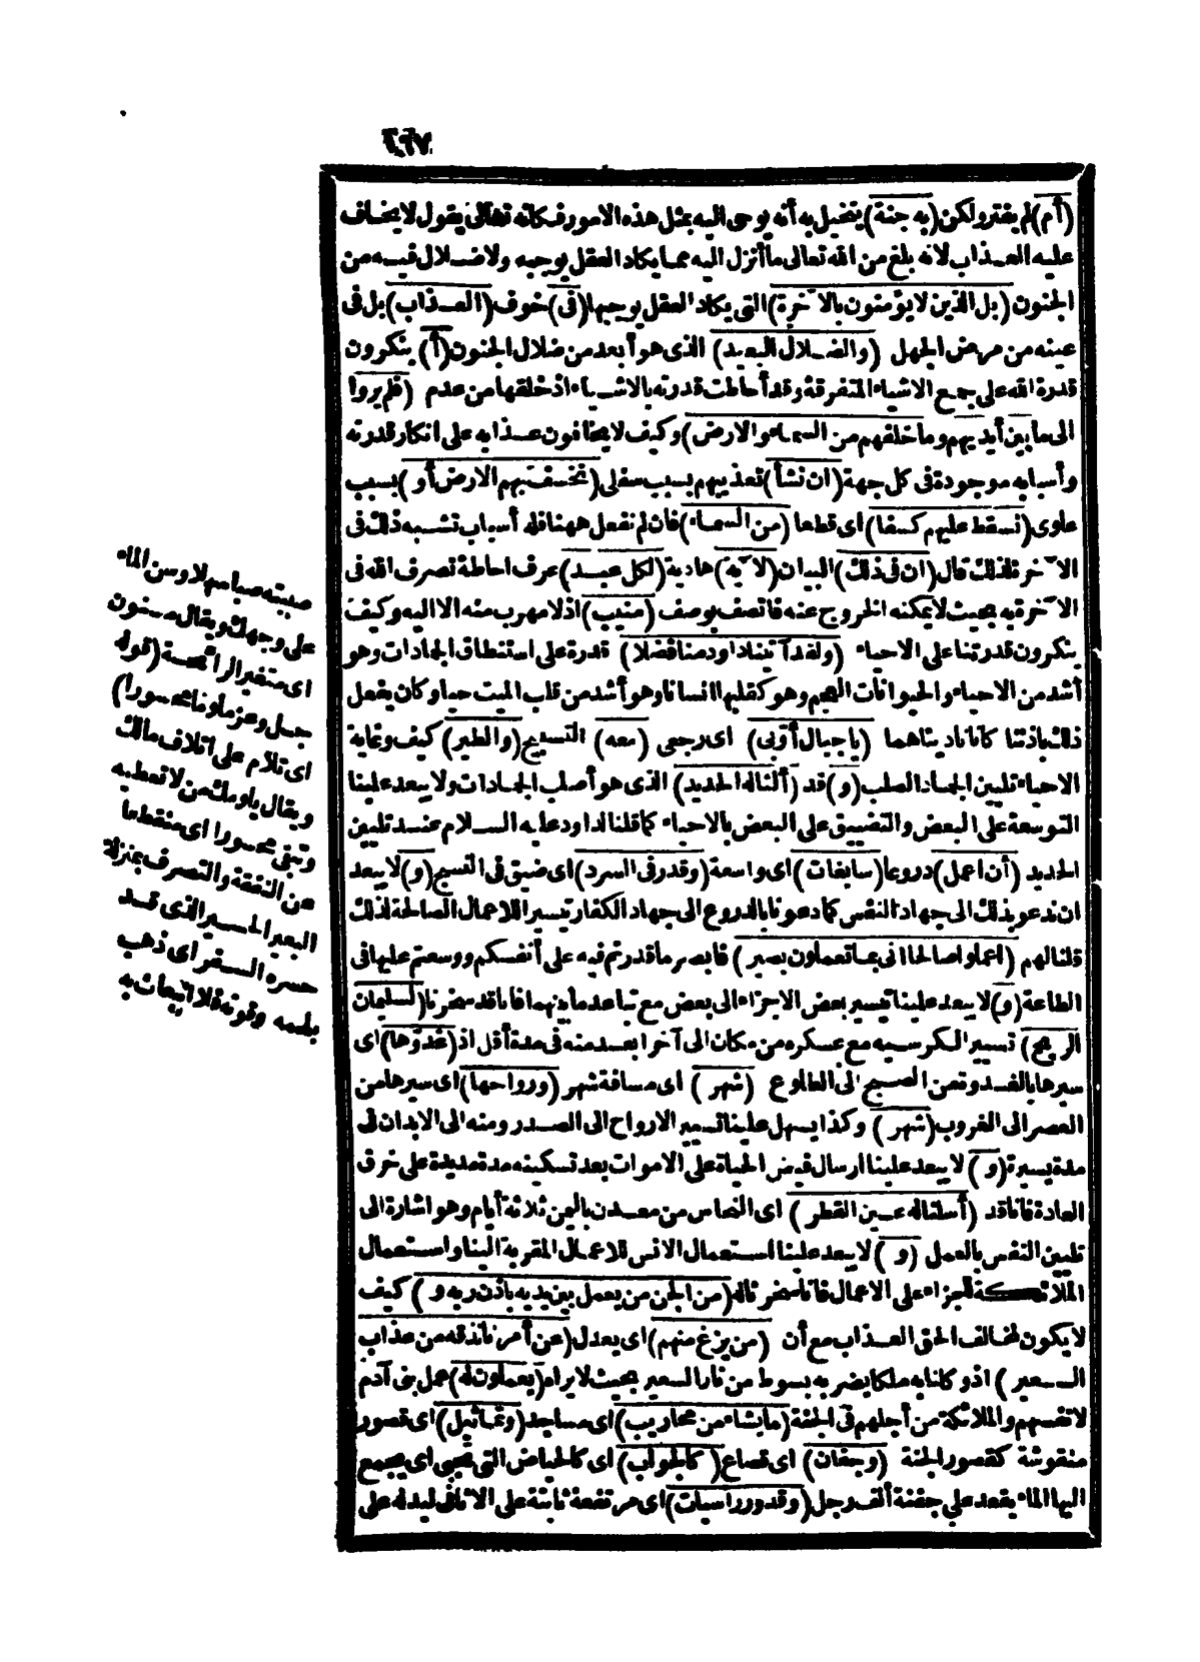 (أم) لم يفتر ولكن (به جنة) يتخيل به أنه يوحى اليه بمثل هذه الامور فكانه تعالى يقول لا يخاف
عليه العذاب لانه بلغ من الله تعالى ما أنزل اليه مما يكاد العقل يوجبه ولا ضلال فيه من
الجنون (بل الذين لا يؤمنون بالآخرة) التى يكاد العقل يوجبها (فى) خوف (العذاب) بل فى
عينه من مرض الجهل (والضلال البعيد) الذى هو أبعد من ضلال الجنون (أ) ينكرون
قدرة الله على جمع الاشياء المتفرقة وقد أحاطت قدرته بالاشياء اذ خلقها من عدم (فلم يروا
الى ما بين أيديهم وما خلفهم من السماء والارض) وكيف لا يخافون عذابه على انكار قدرته
وأسبابه موجودة فى كل جهة (ان نشأ) تعذيبهم بسبب سفلى (نخسف بهم الارض أو) بسبب
علوى (نسقط عليهم كسفا) اى قطعا (من السماء) فان لم نفعل ههنا فله أسباب تشبه ذلك فى
الآخرة فلذلك قال (ان فى ذلك) البيان (لآية) هادية (لكل عبد) عرف احاطة تصرف الله فى
الآخرة به بحيث لا يمكنه الخروج عنه فاتصف بوصف (منيب) اذ لا مهرب منه الا اليه وكيف
ينكرون قدرتنا على الاحياء (ولقد آتينا داود منا فضلا) قدرة على استنطاق الجمادات وهو
أشد من الاحياء والحيوانات العجم وهو كقلبها انسانا وهو أشد من قلب الميت حيا وكان يفعل
ذلك باذننا كانا ناديناهما (يا جبال أوّبى) اى رجعى (معه) التسبيح (والطير) كيف وغاية
الاحياء تليين الجماد الصلب (و) قد (ألنا له الحديد) الذى هو أصلب الجمادات ولا يبعد علينا
التوسعة على البعض والتضييق على البعض بالاحياء كما قلنا لداود عليه السلام عند تليين
الحديد (أن اعمل) دروعا (سابغات) اى واسعة (وقدر فى السرد) اى ضيق فى النسج (و) لا يبعد
ان ندعو بذلك الى جهاد النفس كما دعونا بالدروع الى جهاد الكفار تيسيرا للاعمال الصالحة لذلك
قلنا لهم (اعملوا صالحا انى بما تعملون بصير) فابصر ما قدرتم فيه على أنفسكم ووسعتم عليها فى
الطاعة (و) لا يبعد علينا تيسير بعض الاجزاء الى بعض مع تباعد ما بينهما فانا قد سخرنا (لسليمان
الريح) تسيير الكرسيه مع عسكره من مكان الى آخر ابعد منه فى مدة أقل اذ (غدوّها) اى
سيرها بالغدوة من الصبح الى الطلوع (شهر) اى مسافة شهر (ورواحها) اى سيرها من
العصر الى الغروب (شهر) وكذا يسهل علينا تسيير الارواح الى الصدر ومنه الى الابدان فى
مدة يسيرة (و) لا يبعد علينا ارسال فيض الحياة على الاموات بعد تسكينه مدة مديدة على خرق
العادة فانا قد (أسلنا له عين القطر) اى النحاس من معدن باليمن ثلاثة أيام وهو اشارة الى
تليين النفس بالعمل (و) لا يبعد علينا استعمال الانس للاعمال المقربة الينا واستعمال
الملائكة للجزاء على الاعمال فانا سخرنا له (من الجن من يعمل بين يديه باذن ربه و) كيف
لا يكون لمخالف الحق العذاب مع أن (من يزغ منهم) اى يعدل (عن أمرنا نذقه من عذاب
السعير) اذ وكلنا به ملكا يضربه بسوط من نار السعير بحيث لا يراه (يعملون له) عمل بنى آدم
لانفسهم والملائكة من أجلهم فى الجنة (ما يشاء من محاريب) اى مساجد (وتماثيل) اى قصور
منقوشة كقصور الجنة (وجفان) اى قصاع (كالجواب) اى كالحياض التى تجبى اى يجمع
اليها الماء يقعد على جفنة ألف رجل (وقدور راسيات) اى مرتفعة ثابتة على الاثافى ليدله على
صببته صبا سهلا وسن الماء
على وجهك ويقال مسنون
اى متغير الرائحة (قوله
جل وعز ملوما محسورا)
اى تلام على اتلاف مالك
ويقال يلومك من لا تعطيه
وتبقى محسورا اى منقطعا
عن النفقة والتصرف بمنزلة
البعير الحسير الذى قد
حسره السفر اى ذهب
بلحمه وقوته فلا انبعاث به